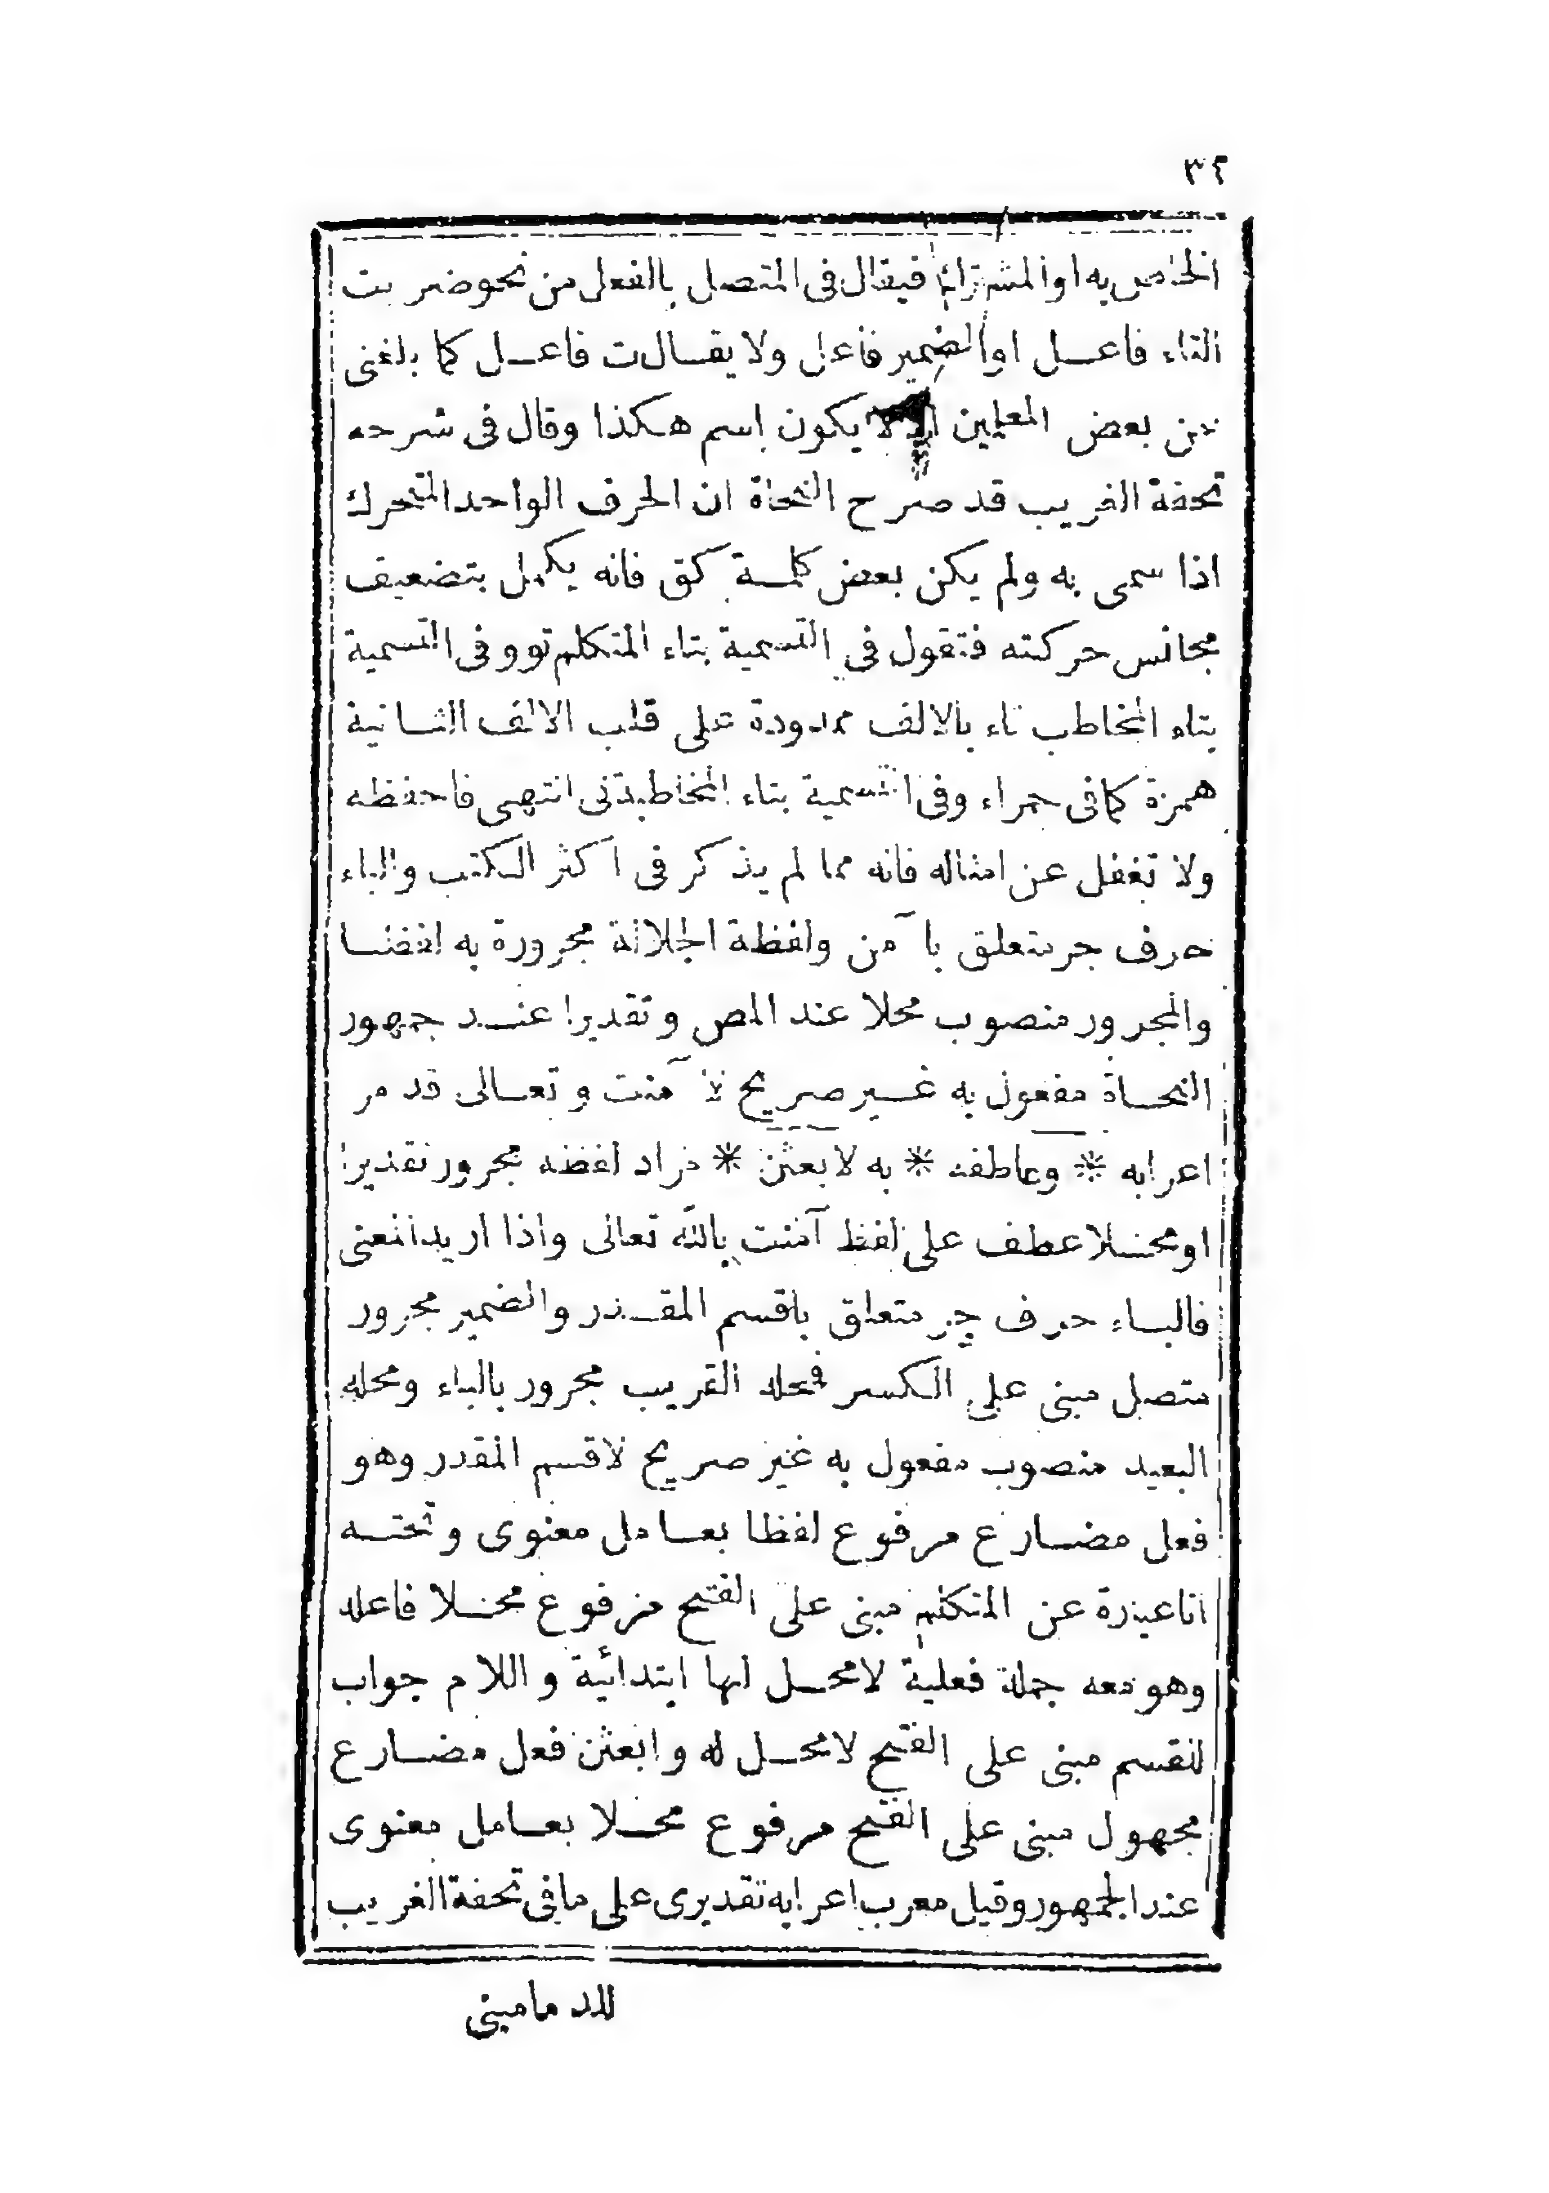 ٣٢
الخاص به او المشترك فيقال فى المتصل بالفعل من نحو ضربت
التاء فاعل او الضمير فاعل ولا يقال ت فاعل كما بلغنى
عن بعض المعلمين اذ لا يكون اسم هكذا وقال فى شرحه
تحفة الغريب قد صرح النحاة ان الحرف الواحد المتحرك
اذا سمى به ولم يكن بعض كلمة كق فانه يكمل بتضعيف
مجانس حركته فتقول فى التسمية بتاء المتكلم تو وفى التسمية
بتاء المخاطب تاء بالالف ممدودة على قلب الالف الثانية
همزة كما فى حمراء وفى التسمية بتاء المخاطبة تى انتهى فاحفظه
ولا تغفل عن امثاله فانه مما لم يذكر فى اكثر الكتب والباء
حرف جر متعلق بآمن ولفظة الجلالة مجرورة به لفظا
والمجرور منصوب محلا عند المص وتقديرا عند جمهور
النحاة مفعول به غير صريح لآمنت وتعالى قد مر
اعرابه * وعاطفه * به لابعثن * مراد لفظه مجرور تقديرا
او محلا عطف على لفظ آمنت بالله تعالى واذا اريد المعنى
فالباء حرف جر متعلق باقسم المقدر والضمير مجرور
متصل مبنى على الكسر فمحله القريب مجرور بالباء ومحله
البعيد منصوب مفعول به غير صريح لاقسم المقدر وهو
فعل مضارع مرفوع لفظا بعامل معنوى وتحته
انا عبارة عن المتكلم مبنى على الفتح مرفوع محلا فاعله
وهو معه جملة فعلية لا محل لها ابتدائية واللام جواب
للقسم مبنى على الفتح لا محل له وابعثن فعل مضارع
مجهول مبنى على الفتح مرفوع محلا بعامل معنوى
عند الجمهور وقيل معرب اعرابه تقديرى على ما فى تحفة الغريب
للدمامينى